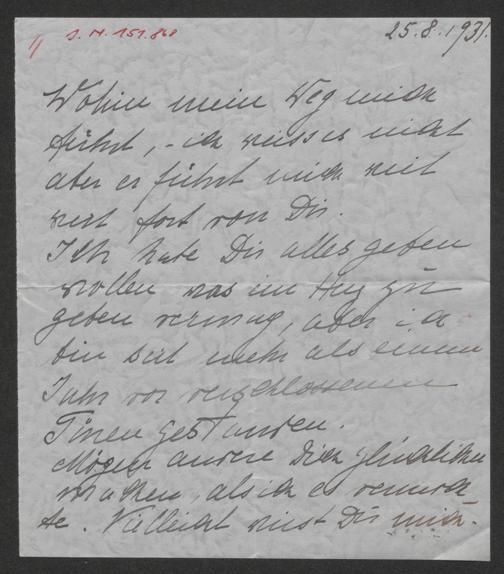 J. N. 151.868
25.8.1931.
Wohin mein Weg mich
führt, - ich weiss es nicht
aber er führt mich weit
weit fort von Dir.
Ich habe Dir alles geben
wollen was ein Herz zu
geben vermag, aber ich
bin seit mehr als einem
Jahr vor verschlossenen
Türen gestanden.
Mögen andere Dich glücklicher
machen, als ich es vermoch
te. Vielleicht wirst Du mich